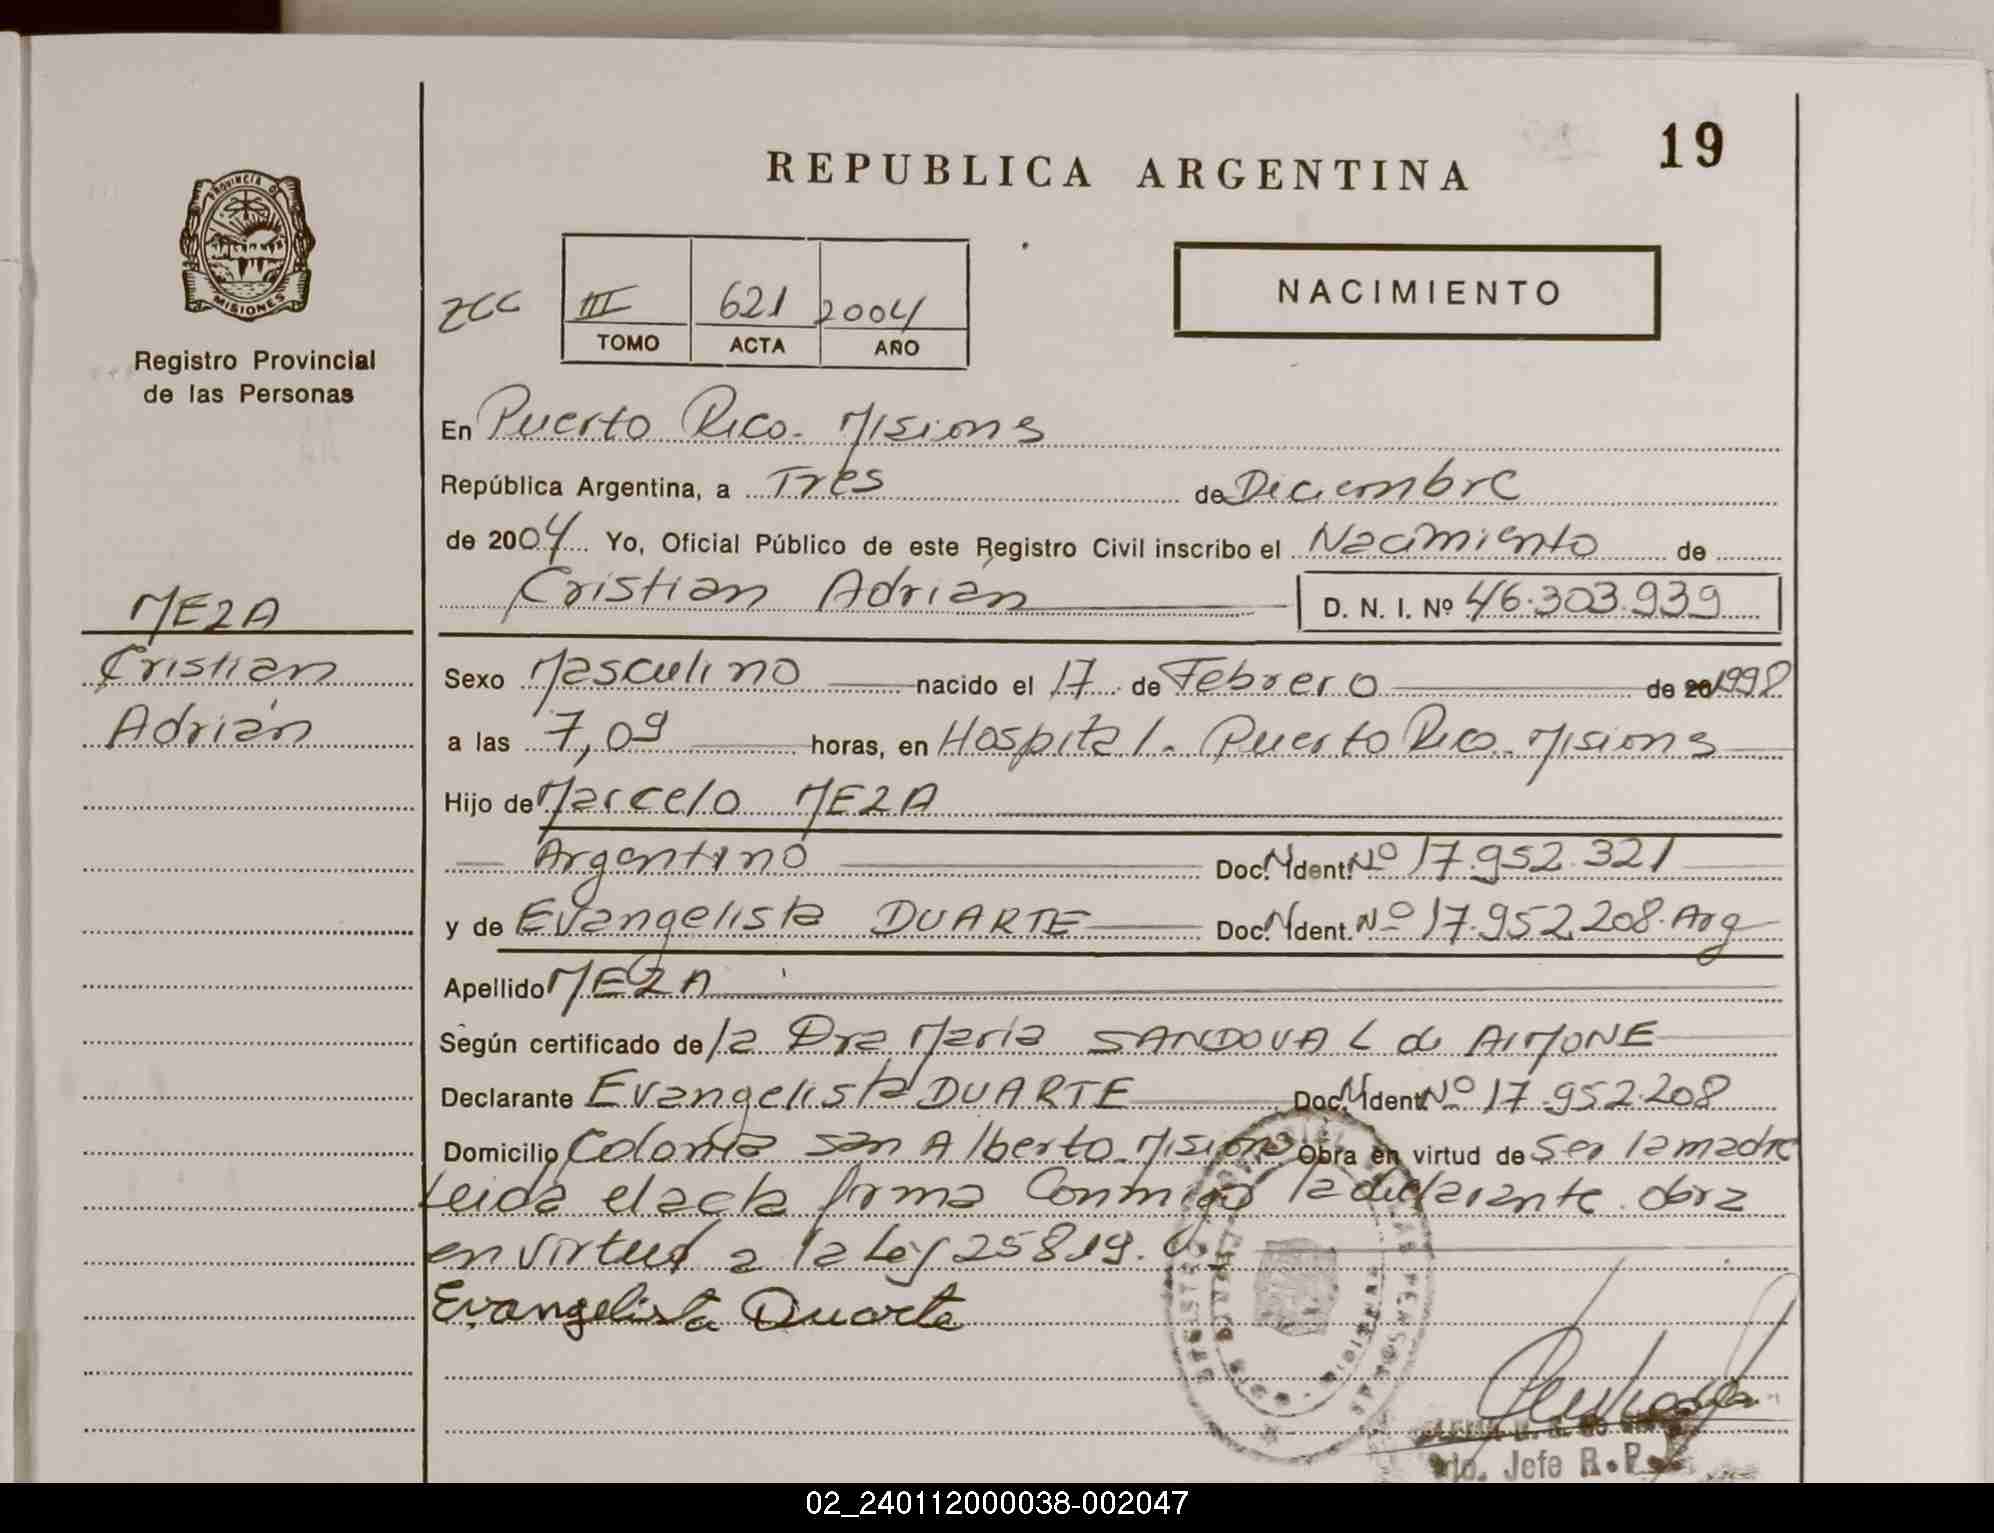 19
REPUBLICA ARGENTINA
PROVINCIA D
MISIONES
Registro Provincial
de las Personas
III 621 2004
TOMO ACTA AÑO
NACIMIENTO
En Puerto Rico - Misiones
República Argentina, a Tres de Diciembre
de 2004 Yo, Oficial Público de este Registro Civil inscribo el Nacimiento de
Cristian Adrián D. N. I. Nº 46.303.939
MEZA
Cristian
Adrián
Sexo Masculino nacido el 17 de Febrero de 20 1998
a las 7,09 horas, en Hospital - Puerto Rico - Misiones
Hijo de Marcelo MEZA
Argentino Doc. N Ident. Nº 17.952.321
y de Evangelista DUARTE Doc. N Ident. Nº 17.952.208. Arg
Apellido MEZA
Según certificado de la Dra Maria SANDOVAL de AIMONE
Declarante Evangelista DUARTE Doc. N Ident. Nº 17.952.208
Domicilio Colonia San Alberto - Misiones Obra en virtud de Ser la madre
Leida el acta firma Conmigo la declarante. obra
en virtud a la Ley 25819.
Evangelista Duarte
Jefe R. P.
02_240112000038-002047